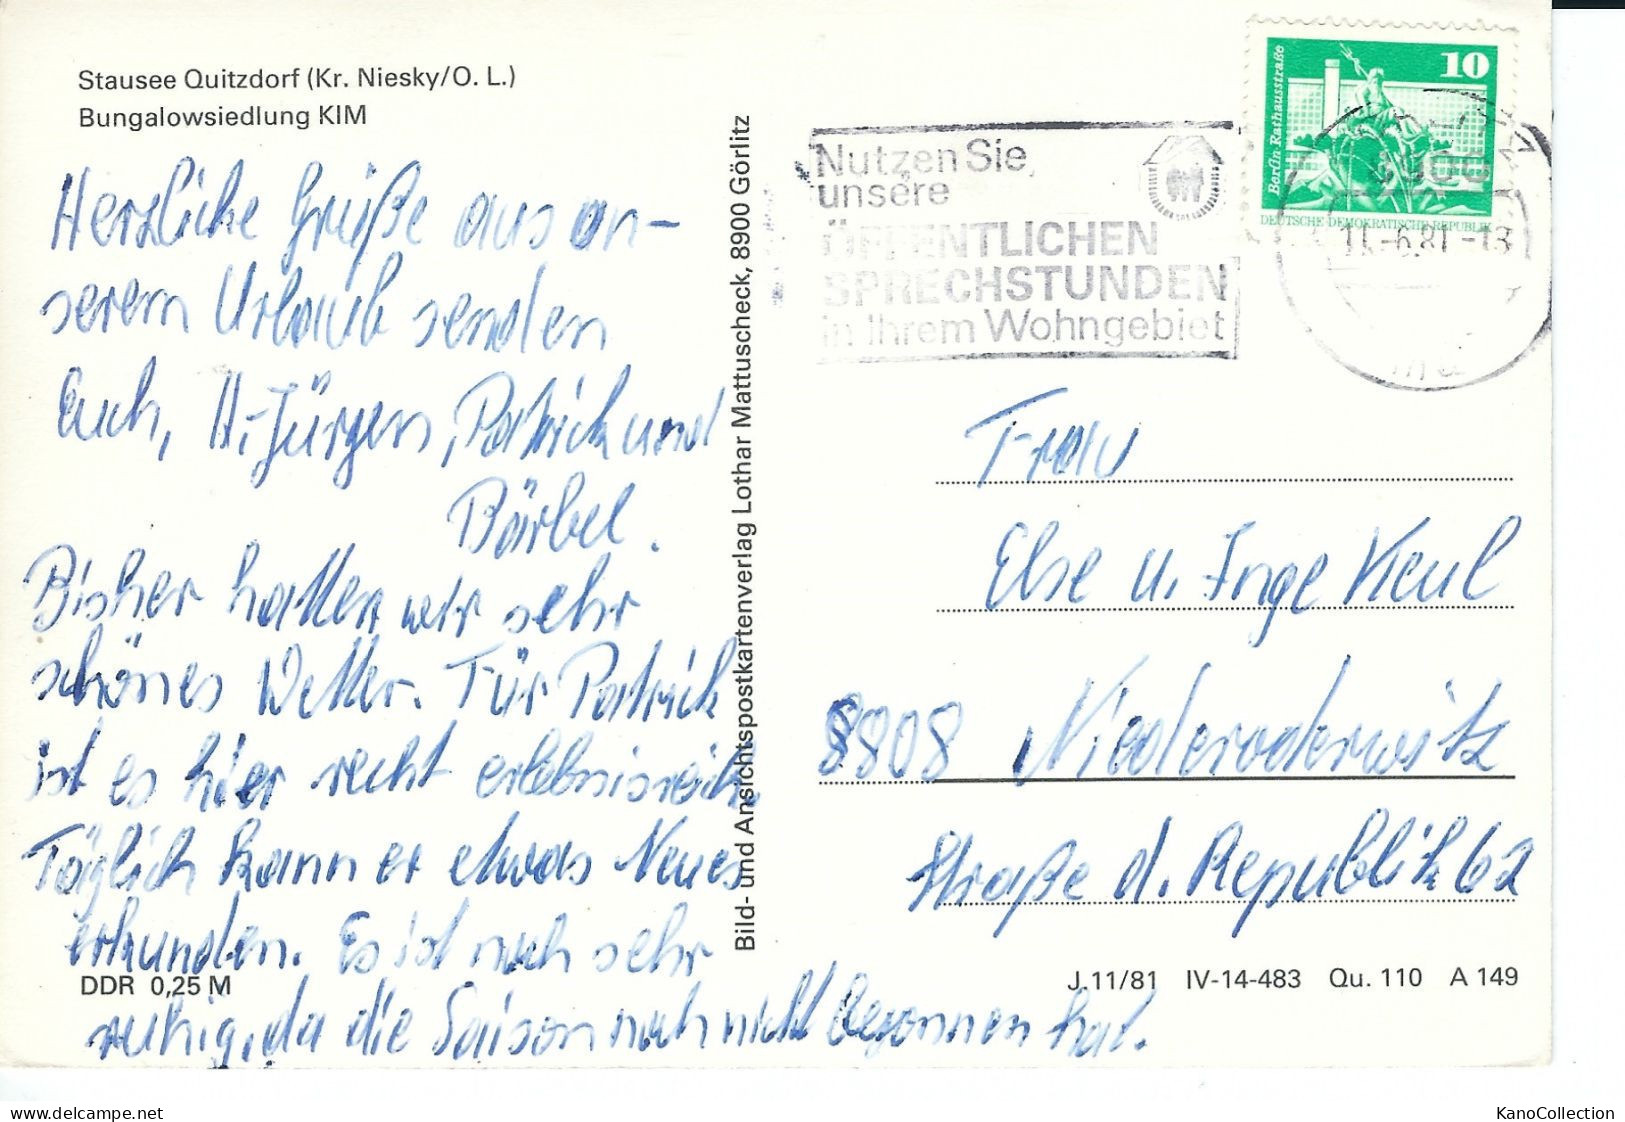 Stausee Quitzdorf (Kr. Niesky/O. L.)
Bungalowsiedlung KIM
Herzliche Grüße aus un-
serem Urlaub senden
Euch, H.-Jürgen, Patrick und
Bärbel.
Bisher hatten wir sehr
schönes Wetter. Für Patrick
ist es hier recht erlebnisreich.
Täglich kann er etwas Neues
erkunden. Es ist noch sehr
ruhig, da die Saison noch nicht begonnen hat.
DDR 0,25 M
Bild- und Ansichtspostkartenverlag Lothar Mattuscheck, 8900 Görlitz
Nutzen Sie
unsere
ÖFFENTLICHEN
SPRECHSTUNDEN
in Ihrem Wohngebiet
10
Berlin Rathausstraße
DEUTSCHE DEMOKRATISCHE REPUBLIK
11.-6.81-18
Frau
Else u. Inge Keul
8808 Niederoderwitz
Straße d. Republik 62
J.11/81 IV-14-483 Qu. 110 A 149
www.delcampe.net
KanoCollection